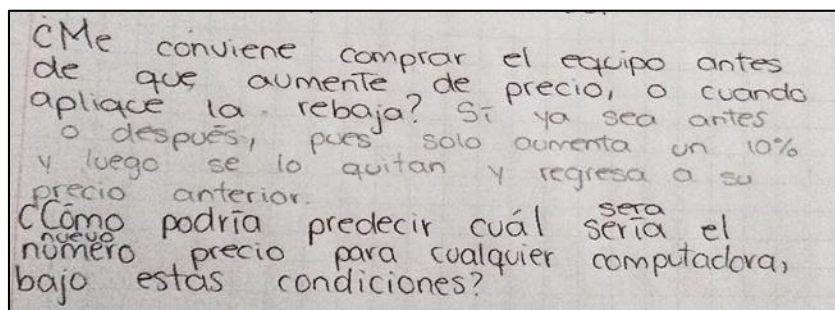 ¿Me conviene comprar el equipo antes
de que aumente de precio, o cuando
apliqce la rebaja? Si ya sea antes
o después, pues solo aumenta un 10%
y luego se lo quitan y regresa a su
precio anterior.
sera
¿Cómo podría predecir cuál sería el
nuevo
número precio para cualquier computadora,
bajo estas condiciones?